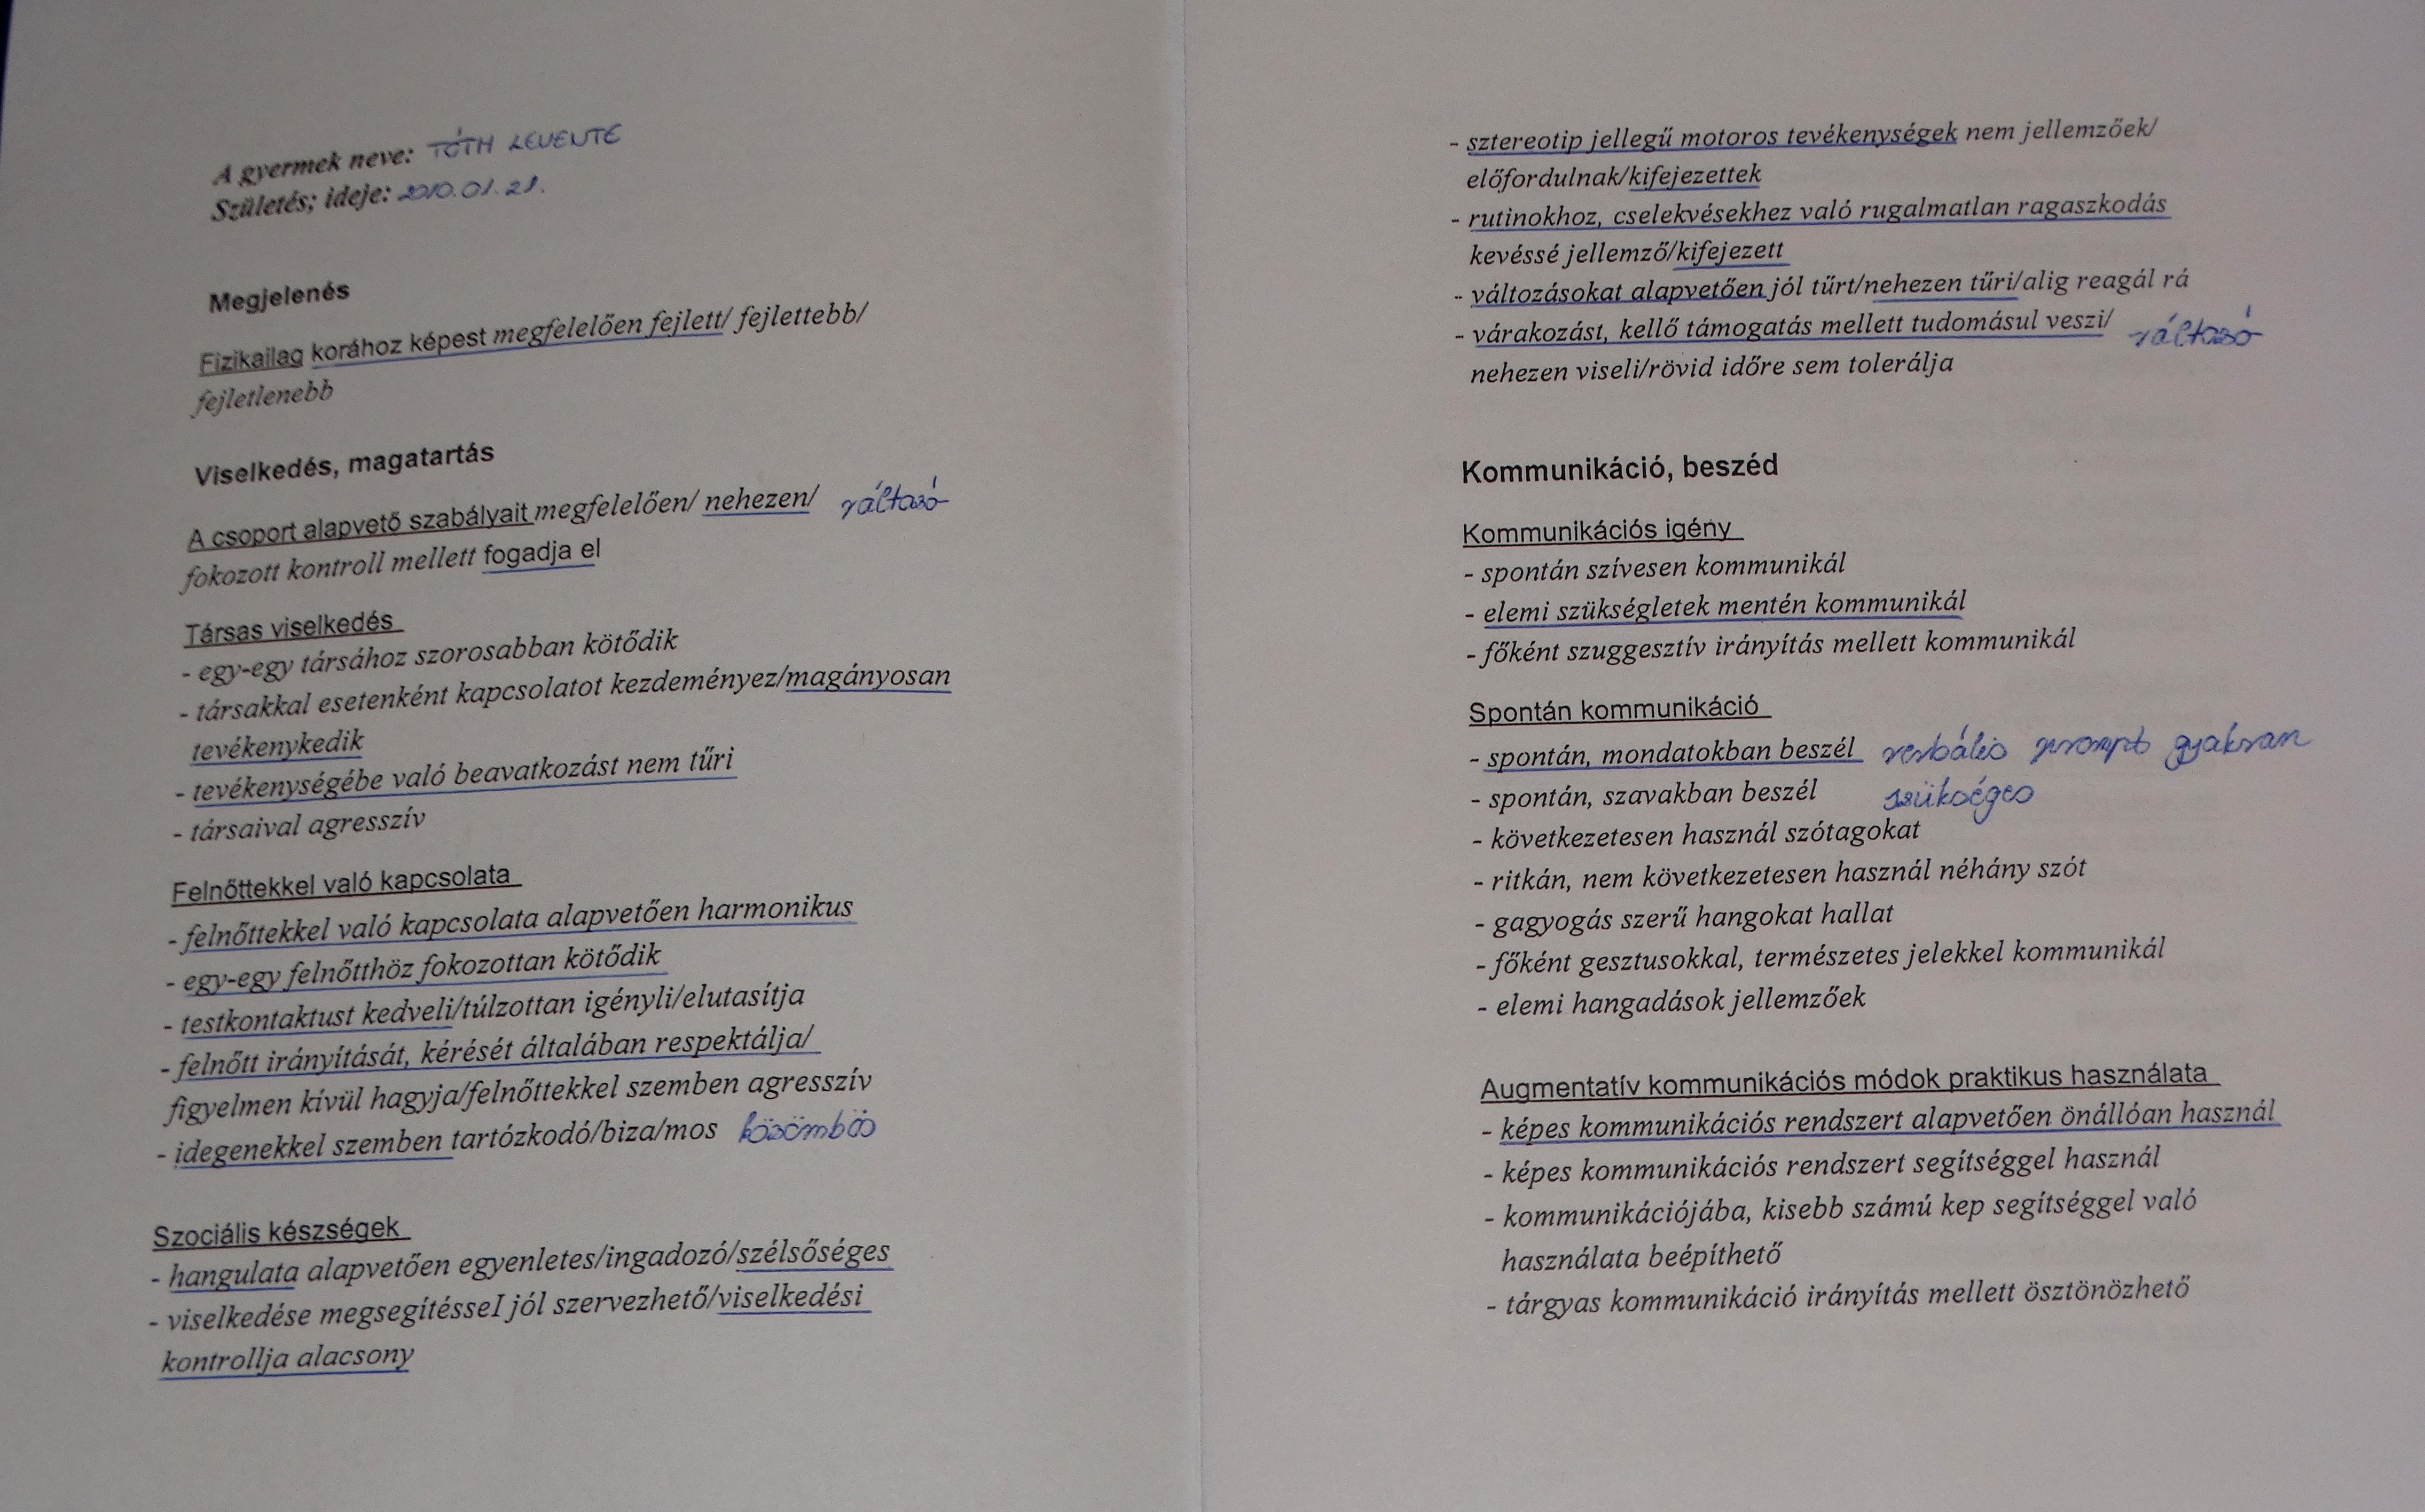 A gyermek neve: TÓTH LEVENTE
Születés; ideje: 2010.01.28.
Megjelenés
Fizikailag korához képest megfelelően fejlett/ fejlettebb/
fejletlenebb
Viselkedés, magatartás
A csoport alapvető szabályait megfelelően/ nehezen/ változó
fokozott kontroll mellett fogadja el
Társas viselkedés
- egy-egy társához szorosabban kötődik
- társakkal esetenként kapcsolatot kezdeményez/magányosan
tevékenykedik
- tevékenységébe való beavatkozást nem tűri
- társaival agresszív
Felnőttekkel való kapcsolata
- felnőttekkel való kapcsolata alapvetően harmonikus
- egy-egy felnőtthöz fokozottan kötődik
- testkontaktust kedveli/túlzottan igényli/elutasítja
- felnőtt irányítását, kérését általában respektálja/
figyelmen kívül hagyja/felnőttekkel szemben agresszív
- idegenekkel szemben tartózkodó/biza/mos közömbös
Szociális készségek
- hangulata alapvetően egyenletes/ingadozó/szélsőséges
- viselkedése megsegítésseI jól szervezhető/viselkedési
kontrollja alacsony
- sztereotip jellegű motoros tevékenységek nem jellemzőek/
előfordulnak/kifejezettek
- rutinokhoz, cselekvésekhez való rugalmatlan ragaszkodás
kevéssé jellemző/kifejezett
- változásokat alapvetően jól tűrt/nehezen tűri/alig reagál rá
- várakozást, kellő támogatás mellett tudomásul veszi/ változó
nehezen viseli/rövid időre sem tolerálja
Kommunikáció, beszéd
Kommunikációs igény
- spontán szívesen kommunikál
- elemi szükségletek mentén kommunikál
- főként szuggesztív irányítás mellett kommunikál
Spontán kommunikáció
- spontán, mondatokban beszél verbális prompt gyakran
- spontán, szavakban beszél szükséges
- következetesen használ szótagokat
- ritkán, nem következetesen használ néhány szót
- gagyogás szerű hangokat hallat
- főként gesztusokkal, természetes jelekkel kommunikál
- elemi hangadások jellemzőek
Augmentatív kommunikációs módok praktikus használata
- képes kommunikációs rendszert alapvetően önállóan használ
- képes kommunikációs rendszert segítséggel használ
- kommunikációjába, kisebb számú kep segítséggel való
használata beépíthető
- tárgyas kommunikáció irányítás mellett ösztönözhető